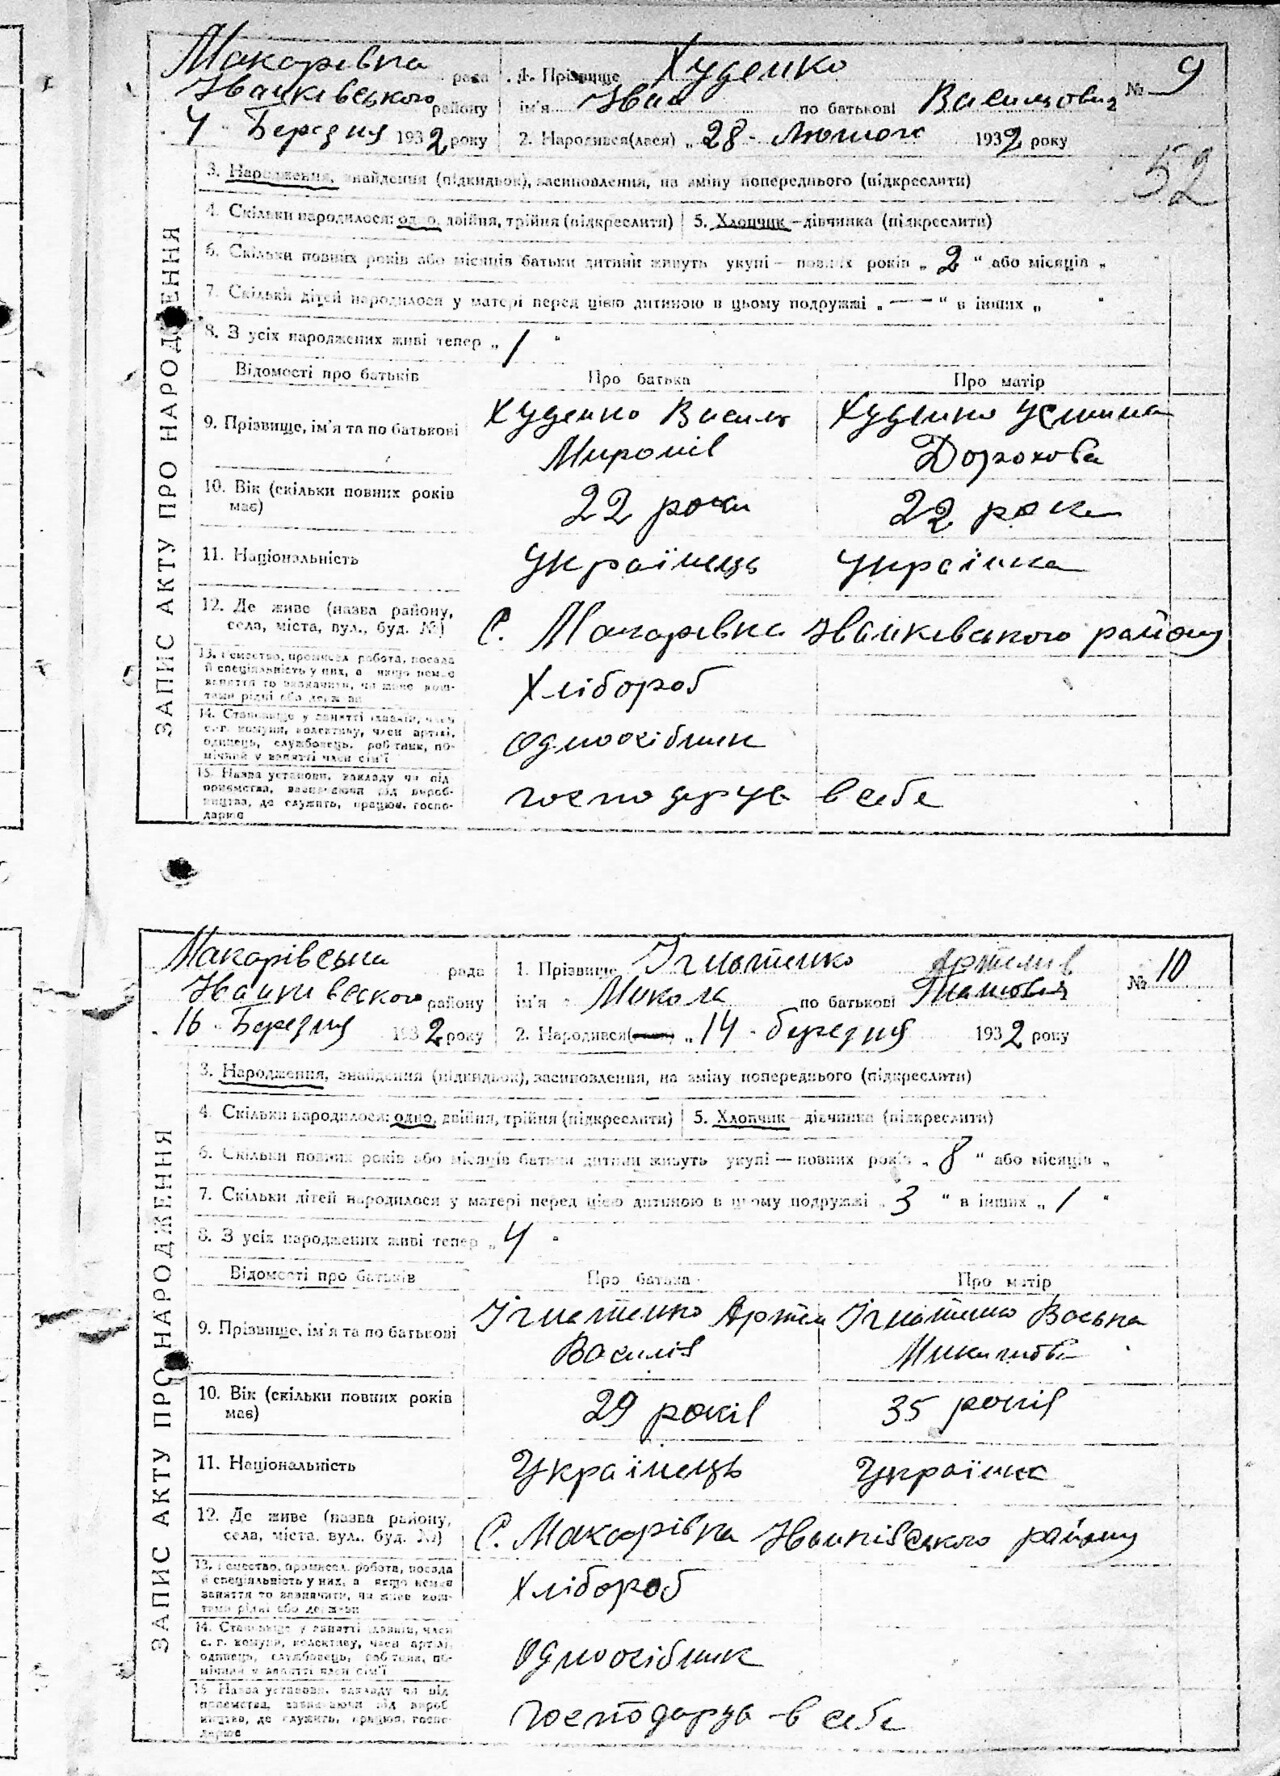 Макарівка рада 1. Прізвище Худенко № 9
Іванківського району ім'я Іван по батькові Васильович
4 Березня 1932 року 2. Народився(лася) „28 - Лютого 1932 року
52
ЗАПИС АКТУ ПРО НАРОДЖЕННЯ
3. Народження, знайдення (підкидьок), засиновлення, на зміну попереднього (підкреслити)
4. Скільки народилося: одно, двійня, трійня (підкреслити) 5. Хлопчик – дівчинка (підкреслити)
6. Скільки повних років або місяців батьки дитини живуть укупі – повних років „ 2 “ або місяців „
7. Скільки дітей народилося у матері перед цією дитиною в цьому подружжі „ — “ в інших „ “
8. З усіх народжених живі тепер „ 1 “
Відомості про батьків Про батька Про матір
9. Прізвище, ім'я та по батькові Худенко Василь Худенко Устина
Миронів Дорохова
10. Вік (скільки повних років має) 22 роки 22 роки
11. Національність Українець Українка
12. Де живе (назва району, села, міста, вул., буд. №) С. Макарівка Іванківського району
13. робота, посада й спеціальність у них, а якщо немає заняття то зазначити, чи живе кош-
тами рідні або держави Хлібороб
14. Становище у занятті член
с.-г. комуни, колективу, член артілі,
одинець, службовець, робітник, по-
мічний у занятті член сім'ї Одноосібник
15. Назва установи, закладу чи під-
приємства, зазначаючи рід вироб-
ництва, де служить, працює, госпо-
дарює господарує в себе
Макарівська рада 1. Прізвище Ігнатенко Артемів № 10
Іванківського району ім'я Микола по батькові
16 - Березня 1932 року 2. Народився „14 - березня 1932 року
ЗАПИС АКТУ ПРО НАРОДЖЕННЯ
3. Народження, знайдення (підкидьок), засиновлення, на зміну попереднього (підкреслити)
4. Скільки народилося: одно, двійня, трійня (підкреслити) 5. Хлопчик – дівчинка (підкреслити)
6. Скільки повних років або місяців батьки дитини живуть укупі – повних років „ 8 “ або місяців „
7. Скільки дітей народилося у матері перед цією дитиною в цьому подружжі „ 3 “ в інших „ 1 “
8. З усіх народжених живі тепер „ 4 “
Відомості про батьків Про батька Про матір
9. Прізвище, ім'я та по батькові Ігнатенко Артем Ігнатенко Васька
Василів Микитова
10. Вік (скільки повних років має) 29 років 35 років
11. Національність Українець Українка
12. Де живе (назва району, села, міста, вул., буд. №) С. Макарівка Іванківського району
13. робота, посада й спеціальність у них, а якщо немає заняття то зазначити, чи живе кош-
тами рідні або держави Хлібороб
14. Становище у занятті член
с. г. комуни, колективу, член артілі,
одинець, службовець, робітник, по-
мічний у занятті член сім'ї Одноосібник
15 Назва установи, закладу чи під-
приємства, зазначаючи рід вироб-
ництва, де служить, працює, госпо-
дарює господарує в себе